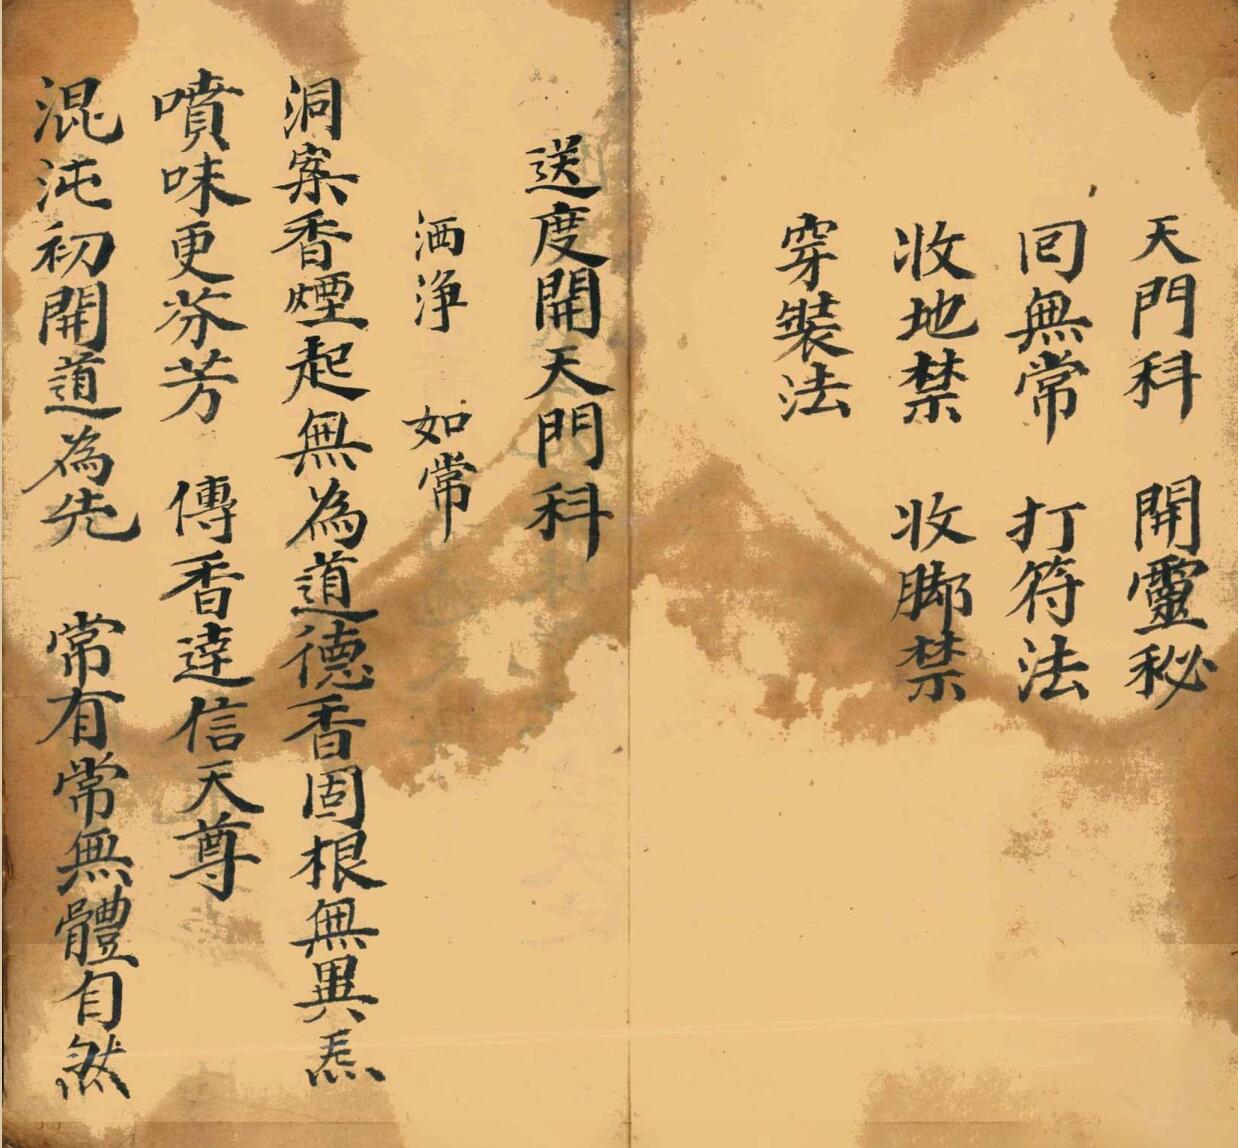 天門科 開靈秘
囘無常 打符法
收地禁 收脚禁
穿裝法
送度開天門科
洒淨 如常
洞案香煙起無為道德香固根無異炁
噴味更芬芳 傳香達信天尊
混沌初開道為先 常有常無體自然